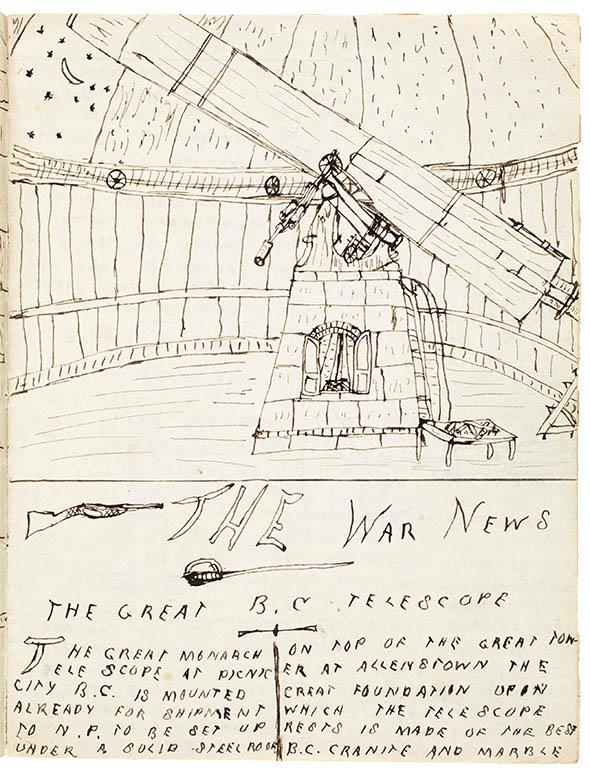 THE WAR NEWS
THE GREAT B.C. TELESCOPE
THE GREAT MONARCH
ELE SCOPE AT PICNIC
CITY B.C. IS MOUNTED
ALREADY FOR SHIPMENT
TO N.P. TO BE SET UP
UNDER A SOLID STEEL ROOF
ON TOP OF THE GREAT TOW-
ER AT ALLENSTOWN THE
GREAT FOUNDATION UPON
WHICH THE TELESCOPE
RESTS IS MADE OF THE BEST
B.C. GRANITE AND MARBLE